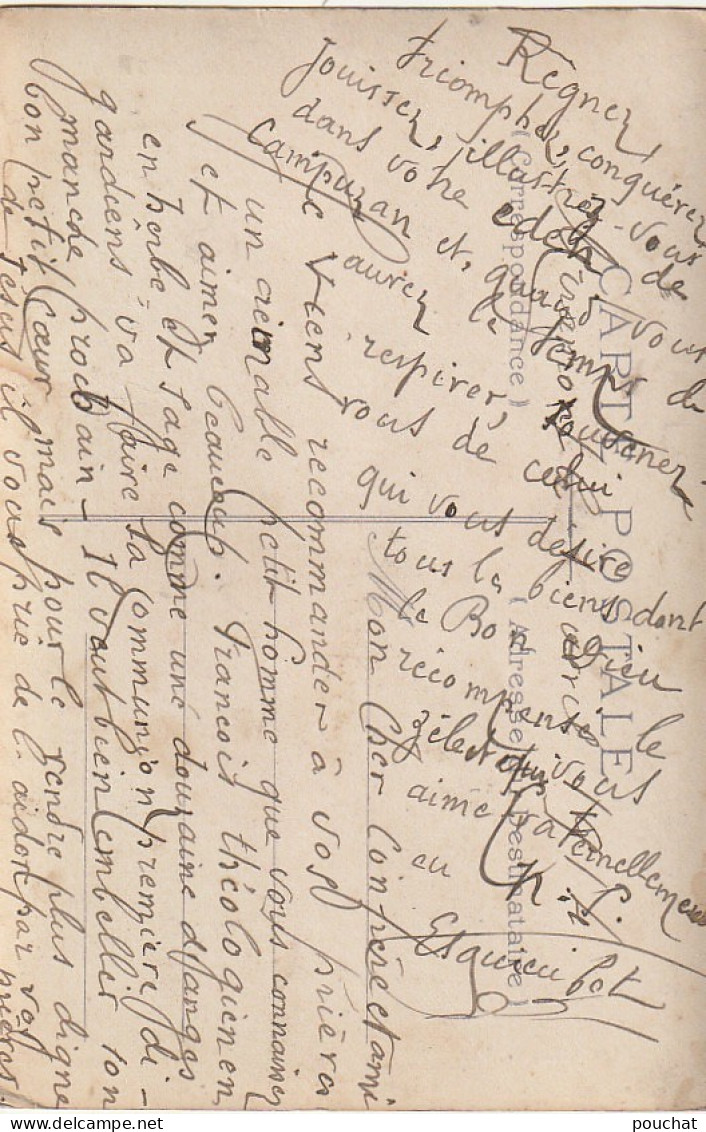 CARTE POSTALE
( Correspondance )
( Adresse du Destinataire )
Mon Cher Confrère et ami
Je viens recommander à vos prières
un aimable petit homme que vous connaissez
et aimez beaucoup. François théologien en
en herbe et sage comme une douzaine d'anges
gardiens va faire sa communion première di-
manche prochain - Il vaut bien embellir son
bon petit cœur mais pour le rendre plus digne
de Jésus il vous prie de l'aider par vos
prières.
Régnez,
triomphez, conquérez,
jouissez, illustrez-vous
dans votre eden de
Campuzan et, quand vous
aurez le temps de
respirer, souvenez-
vous de celui
qui vous désire
tous les biens dont
le Bon Dieu
récompense le
zèle et qui vous
aime fraternellement
en N. S.
Esquieu fbt
pouchat